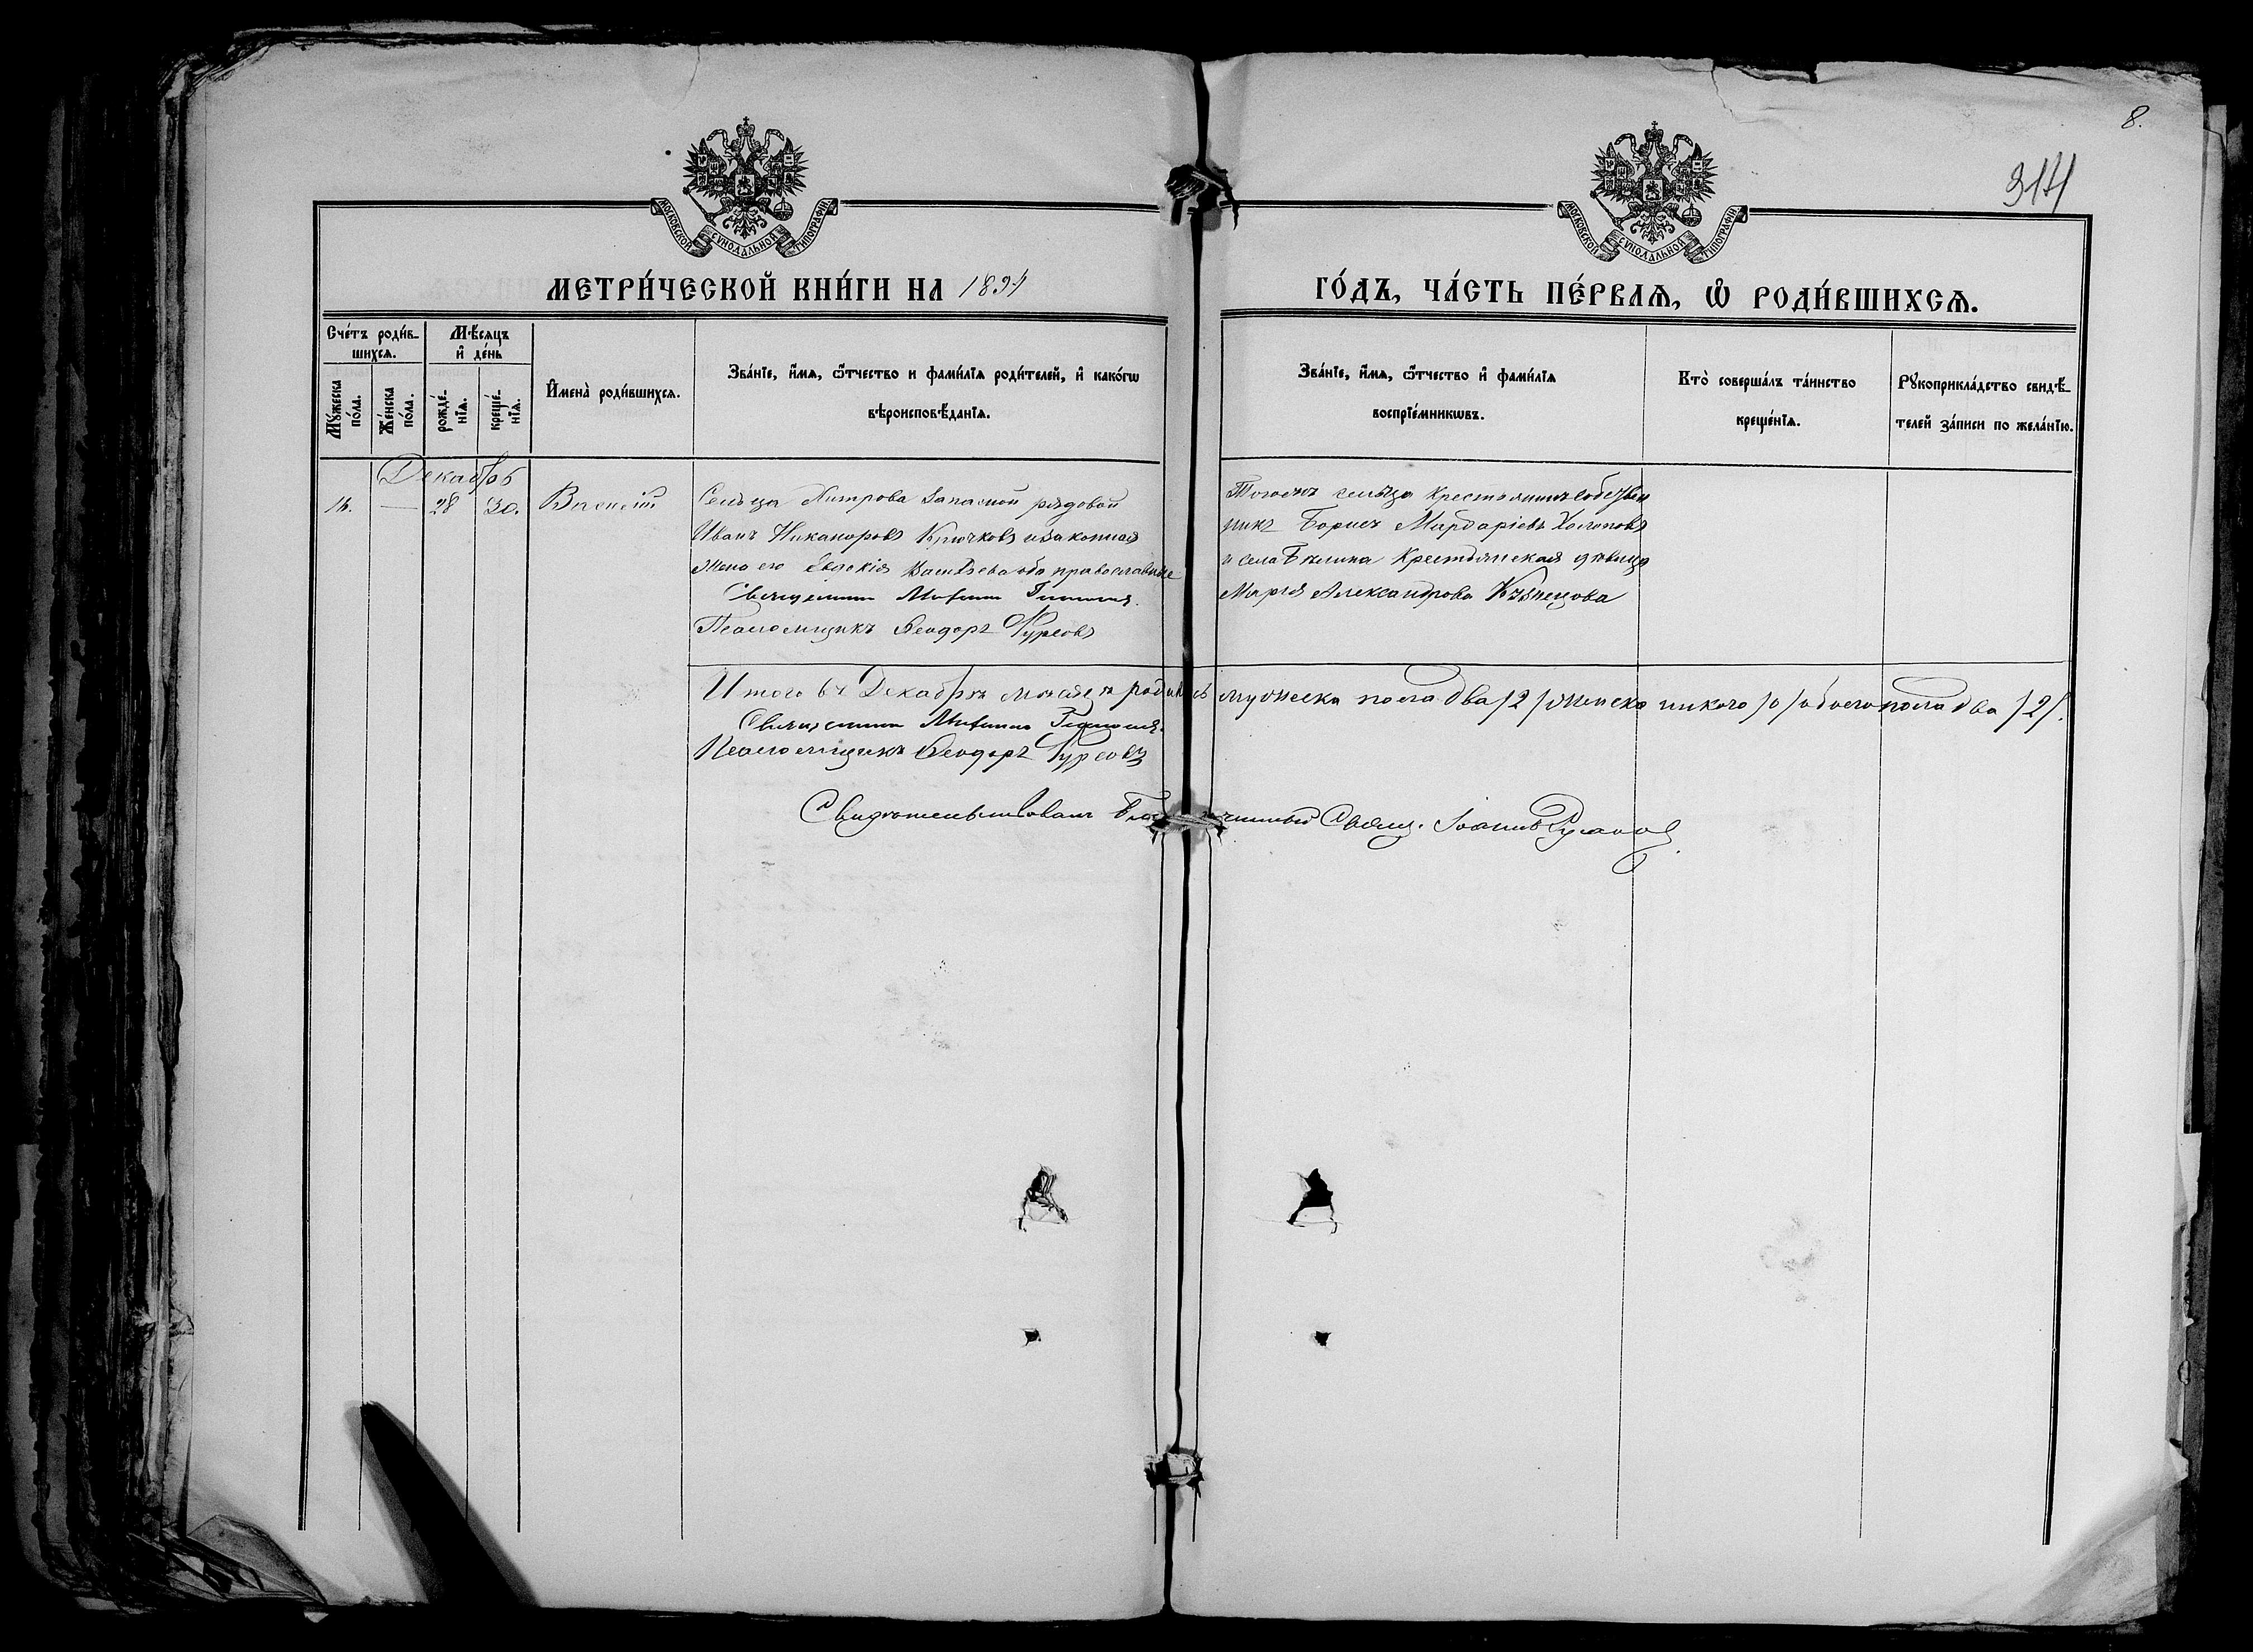 8.
314
МОСКОВСКОЙ СѴНОДАЛЬНОЙ ТИПОГРАФІИ
МОСКОВСКОЙ СѴНОДАЛЬНОЙ ТИПОГРАФІИ
МЕТРИ́ЧЕСКОЙ КНИ́ГИ НА 1894
ГО́ДЪ, ЧА́СТЬ ПЕ́РВАѦ, Ѽ РОДИ́ВШИХСѦ.
Сче́тъ роди́в-
шихсѧ.
Мꙋ́жеска по́ла.
Же́нска по́ла.
Мѣ́сѧцъ
и҆ де́нь
рожде́-
нїѧ.
креще́-
нїѧ.
И҆мена̀ роди́вшихсѧ.
Зва́нїе, и҆́мѧ, ѻ҆́тчество и фами́лїѧ роди́телей, и҆ како́гѡ
вѣроисповѣ́данїѧ.
Зва́нїе, и҆́мѧ, ѻ҆́тчество и҆ фами́лїѧ
воспрїе́мникѡвъ.
Кто̀ соверша́лъ та́инство
креще́нїѧ.
Рꙋкоприкла́дство свидѣ́-
телей за́писи по жела́нїю.
Декабрь
14. — 28 30. Василій
Сельца Хитрова запасной рядовой
Иванъ Никаноровъ Крючковъ и законная
жена его Евдокія Васильева оба православные
Священникъ Митрофанъ
Псаломщикъ Ѳеодоръ Гурьевъ
Тогоже сельца крестьянинъ собствен
никъ Борисъ Мардаріевъ Холоповъ
и села Бѣлина крестьянская дѣвица
Марія Александрова Кузнецова
Итого въ Декабрѣ мѣсяцѣ родилось мужеска пола два /2/ женска никого /0/ обоего пола два /2/.
Священникъ Митрофанъ
Псаломщикъ Ѳеодоръ Гурьевъ
Свидѣтельствовалъ Благочинный Свящ. Іоаннъ Русановъ.